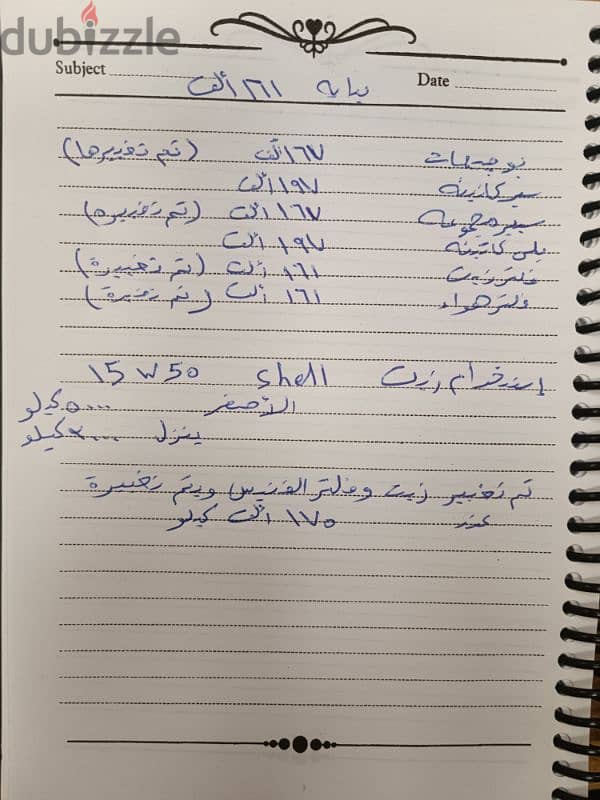 dubizzle
Subject Date
بدايه ١٦١ ألف
بوجيهات ١٦٧ ألف (تم تغييرها)
سير كاتينه ١٩٧ ألف
سير مجموعه ١٦٧ ألف (تم تغييره)
بلي كاتينه ١٩٧ ألف
فلتر زيت ١٦١ ألف (تم تغييرة)
فلتر هواء ١٦١ ألف (تم تغييرة)
إستخدام زيت shell 15 W 50
الأصفر ٥٠٠٠ كيلو
ينزل كيلو
تم تغيير زيت وفلتر الفتيس ويتم تغييرة
عند ١٧٥ ألف كيلو